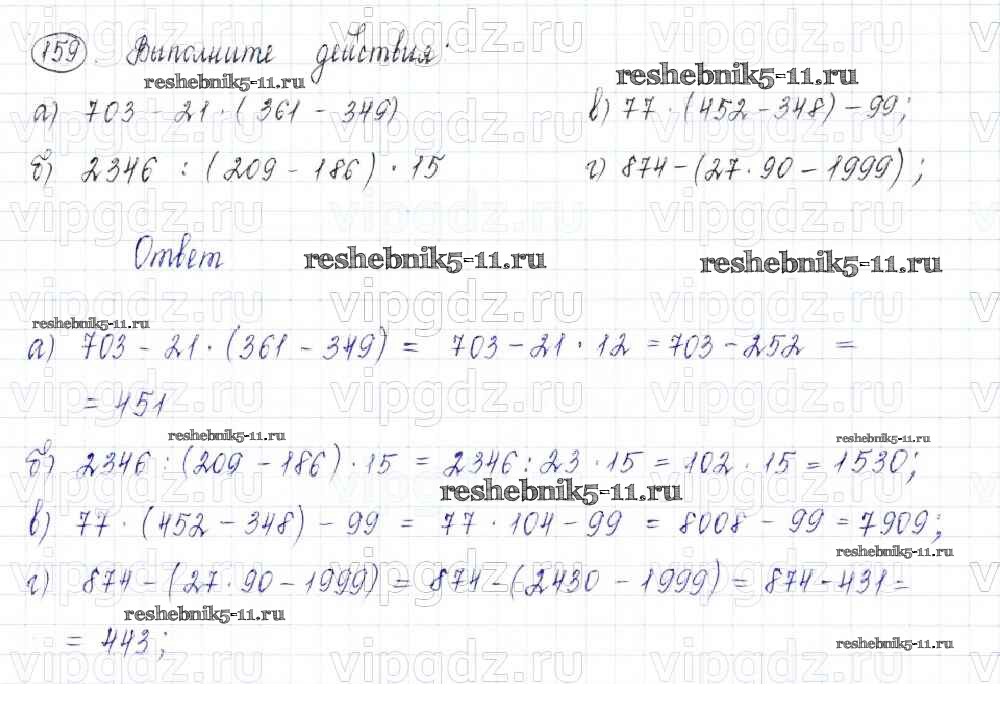 159. Выполните действия:
reshebnik5-11.ru reshebnik5-11.ru
а) 703 - 21 · (361 - 349) в) 77 · (452 - 348) - 99;
б) 2346 : (209 - 186) · 15 г) 874 - (27 · 90 - 1999);
Ответ reshebnik5-11.ru reshebnik5-11.ru
reshebnik5-11.ru
а) 703 - 21 · (361 - 349) = 703 - 21 · 12 = 703 - 252 =
= 451
reshebnik5-11.ru reshebnik5-11.ru
б) 2346 : (209 - 186) · 15 = 2346 : 23 · 15 = 102 · 15 = 1530;
reshebnik5-11.ru
в) 77 · (452 - 348) - 99 = 77 · 104 - 99 = 8008 - 99 = 7909;
reshebnik5-11.ru
г) 874 - (27 · 90 - 1999) = 874 - (2430 - 1999) = 874 - 431 =
reshebnik5-11.ru
= 443;
reshebnik5-11.ru
vipgdz.ru vipgdz.ru vipgdz.ru vipgdz.ru